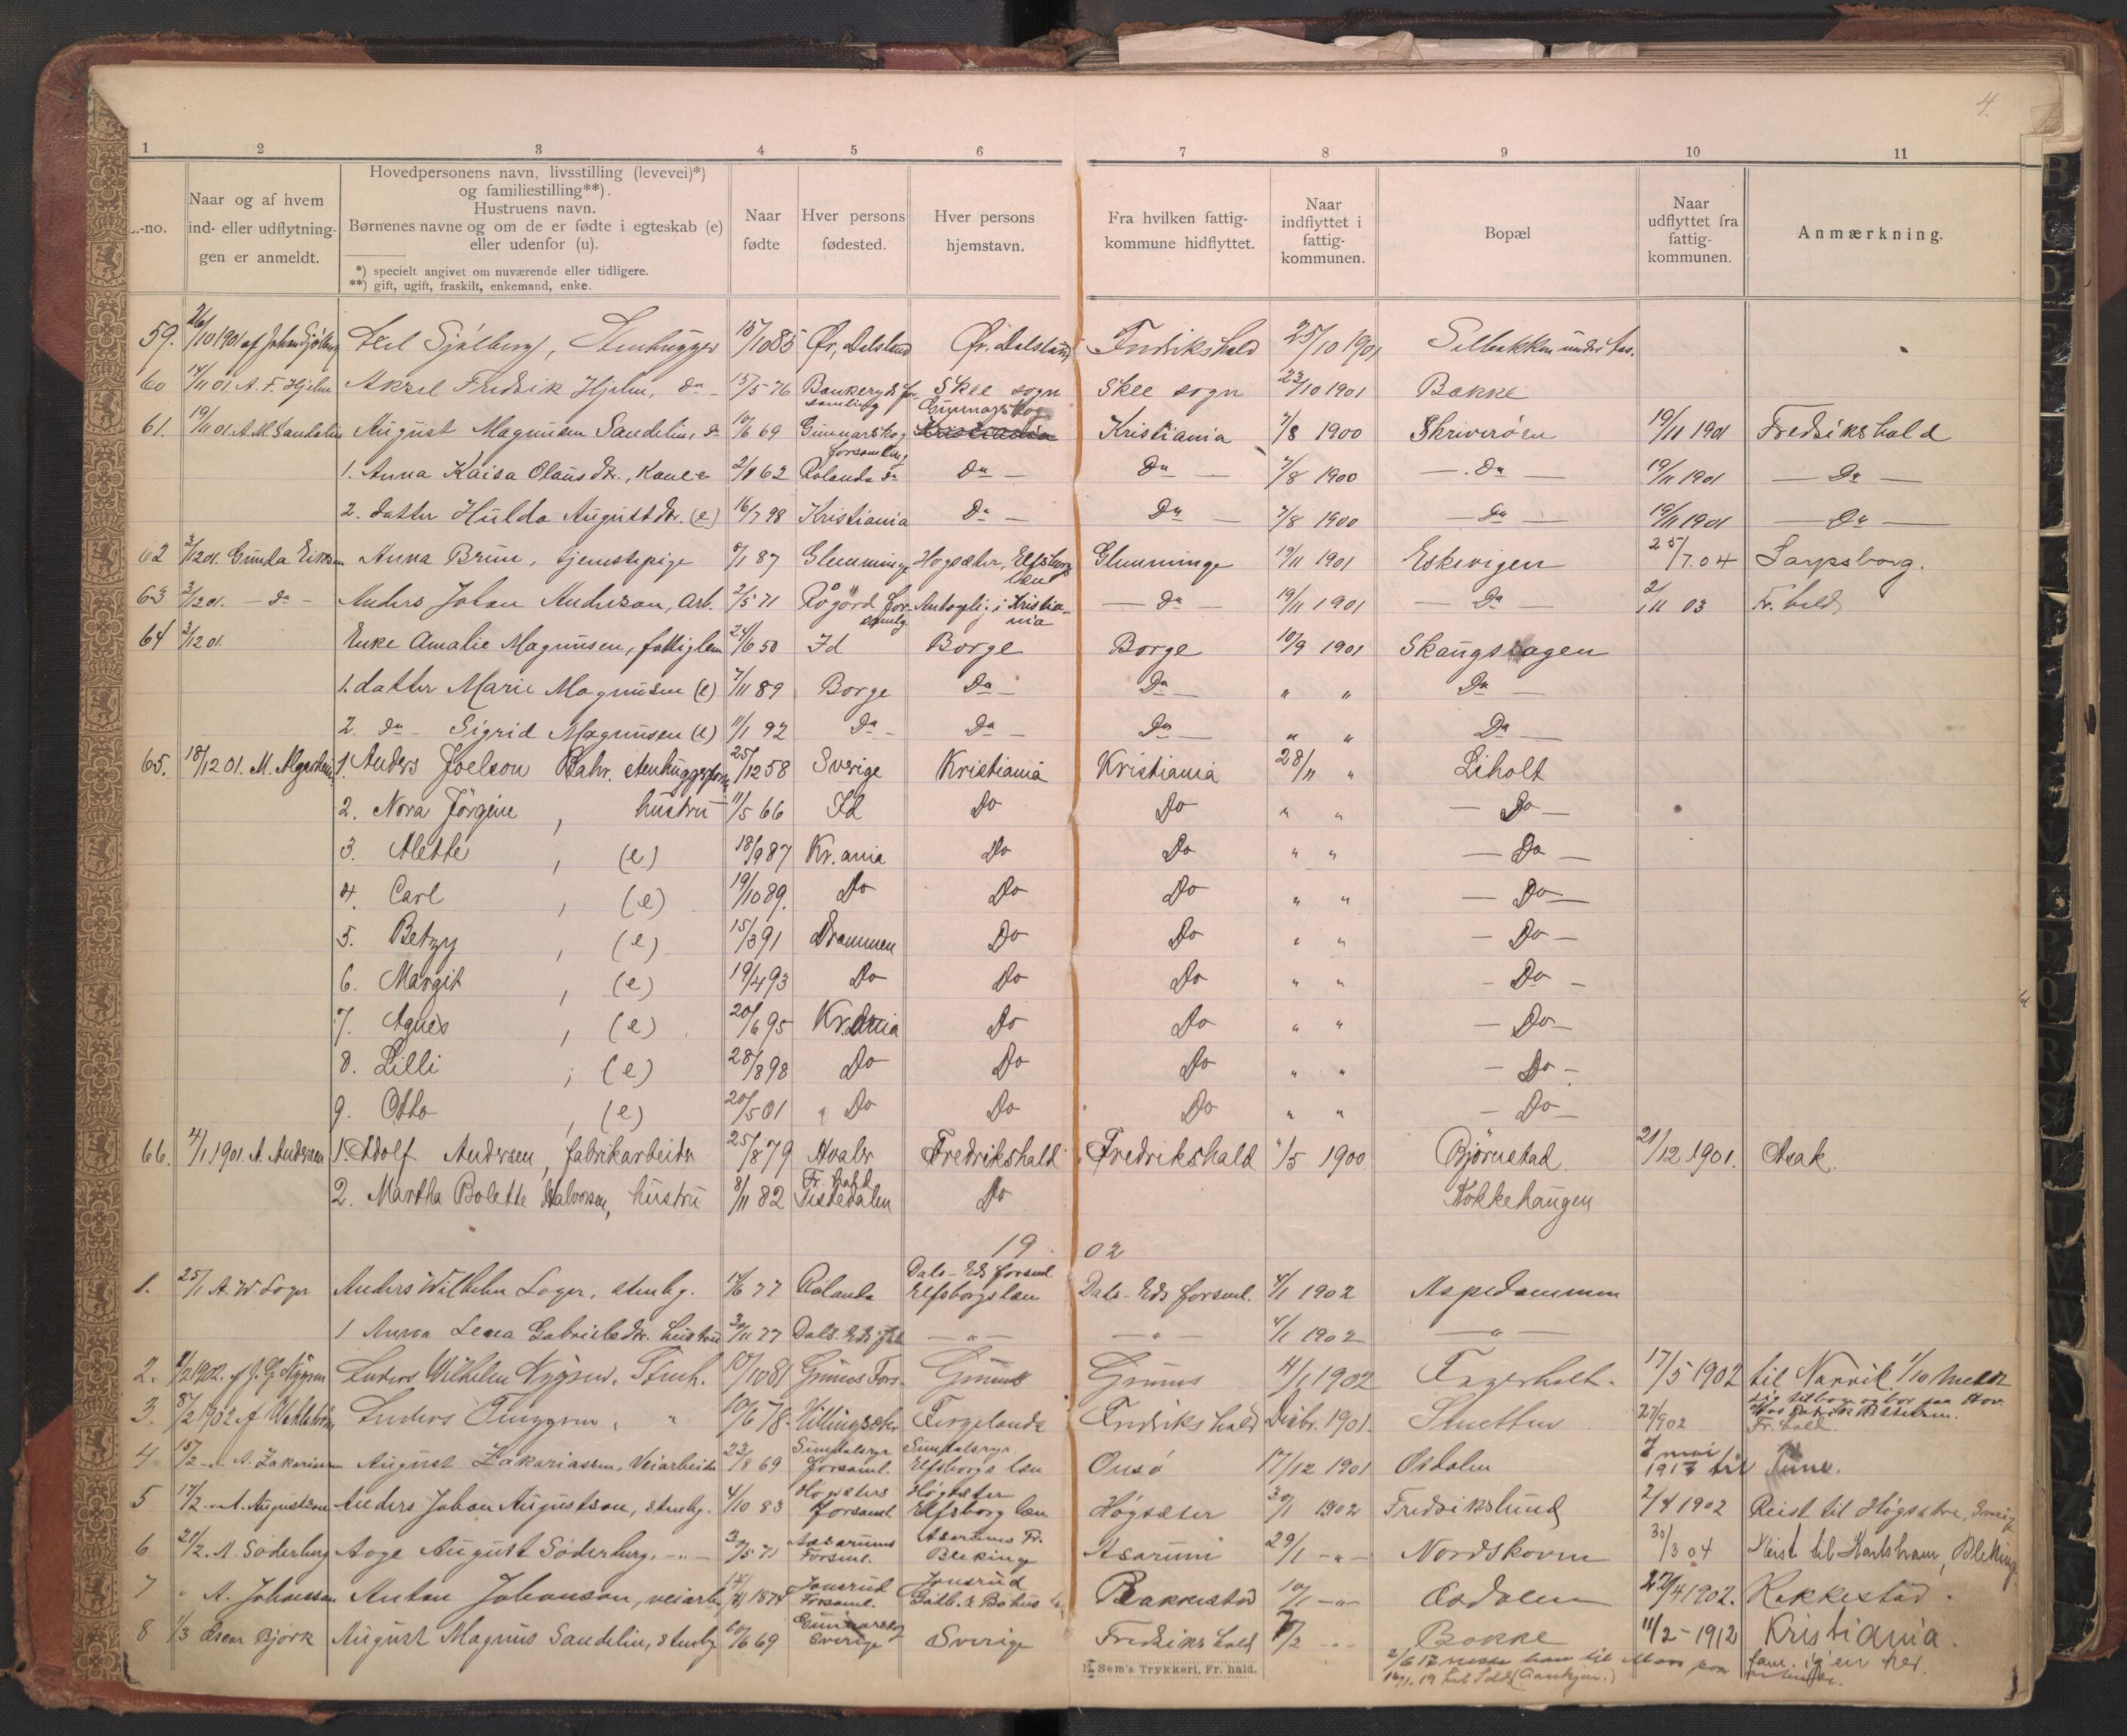 4.
1 2 3 4 5 6 7 8 9 10 11
-no.
Naar og af hvem ind- eller udflytningen er anmeldt.
Hovedpersonens navn, livsstilling (levevei)*)
og familiestilling**).
Hustruens navn.
Børnenes navne og om de er fødte i egteskab (e)
eller udenfor (u).
*) specielt angivet om nuværende eller tidligere.
**) gift, ugift, fraskilt, enkemand, enke.
Naar fødte
Hver persons fødested.
Hver persons hjemstavn.
Fra hvilken fattigkommune hidflyttet.
Naar indflyttet i fattigkommunen.
Bopæl
Naar udflyttet fra fattigkommunen.
Anmærkning.
59. 26/10 1901 af Johan Sjölberg Sjölberg, Stenhugger 15/10 85 Ør, Dalsland Ør. Dalsland Fredrikshald 25/10 1901
60 14/11 01. A. F. Hjelm Aksel Fredrik Hjelm, do 15/5 76 Bankeryds forsamling Skee sogn Skee sogn 23/10 1901 Bakke
61. 19/11 01. A. M. Sandelin August Magnusen Sandelin, do 10/6 69 Gunnarskog forsamling Gunnarskog Kristiania Kristiania 7/8 1900 Skriverøen 19/11 1901 Fredrikshald
1. Anna Kaisa Olausdtr., Kone 62 Rolanda do Do Do 7/8 1900 Do 19/11 1901 Do
2. datter Hulda Augustdtr. (e) 16/7 98 Kristiania Do Do 7/8 1900 Do 19/11 1901 Do
62 3/12 01. Gunda Eriksen Anna Brun, tjenestepige 8/1 87 Glemminge Høgsæter, Elfsborg læn Glemminge 19/11 1901 Eskevigen 25/7.04 Sarpsborg.
63 3/12 01. do Anders Johan Anderson, Arb. 2/5 71 forsamlg. Antagelig i Kristiania do 19/11 1901 Do 2/11 03 Fr.hald
64 3/12 01. Enke Amalie Magnusen, fattiglem 24/6 50 Id Borge Borge 10/9 1901 Skaugshagen
1. datter Marie Magnusen (e) 7/11 89 Borge Do Do " " Do
2. do Sigrid Magnusen (e) 11/1 92 Do Do Do " " Do
65. 18/12 01. M. 1. Anders Joelson stenhuggerform. 25/12 58 Sverige Kristiania Kristiania 28/11 " Liholt
2. Nora Jörgine, hustru 11/5 66 Id Do Do " " Do
3. Alette, (e) 18/9 87 Kr.ania Do Do " " Do
4. Carl, (e) 19/10 89. Do Do Do " " Do
5. Betzy, (e) 15/3 91 Drammen Do Do " " Do
6. Margit, (e) 19/4 93 Do Do Do " " Do
7. Agnes, (e) 20/6 95 Kr.ania Do Do " " Do
8. Lilli, (e) 28/8 98 Do Do Do " " Do
9. Otto, (e) 20/5 01 Do Do Do " " Do
66. 4/1 1901. A. Andersen 1. Adolf Andersen, fabrikarbeider 25/8 79 Hvaler Fredrikshald Fredrikshald 1/5 1900 Bjørnestad 21/12 1901. Asak.
2. Martha Bolette Halvorsen, hustru 8/11 82 Fr.hald Tistedalen Do Kokkehaugen
19 02
1. 25/1 A. W. Loger Anders Wilhelm Loger, stenhg. 14/6 77 Rölanda Dals-Eds forsml. Elfsborgs læn Dals-Eds forsml. 4/1 1902 Aspedammen
1 Anna Lena Gabrielsdtr. hustru 30/11 77 Dals. Eds " " 4/1 1902 "
2. 8/2 1902. af J. G. Nygren Anders Wilhelm Nygren, Stenh. 10/10 81 Grinnes Fors. 4/1 1902 Fagerholt. 17/5 1902 til Narvik
3. 8/2 1902 af Anders " 10/6 78. Fredrikshald Desbr. 1901. 27/902 Fr.hald.
4 15/2 " A. Zakariasen August Zakariassen, Veiarbeider 23/8 69 forsaml. Elfsborgs læn Onsö 17/12 1901 Osdalen 7 mai 1917 til Tune.
5 17/2 " A. Augustson Anders Johan Augustson, stenhg. 4/10 83 Högsæters forsaml. Högsæter Elfsborg læn Högsæter 30/1 1902 Fredrikslund 2/4 1902 Reist til Högsäter, Sverige
6 21/2. A. Söderberg Aage August Söderberg, " 30/5 71 Asarums Forsml. Asarums Fr. Bleking Asarum 29/1 " Nordskoven 30/3 04 Reist til Karlshamn, Bleking
7 " A. Johansson Anton Johanson, veiarb. 1874 Jonsrud Forsaml. Jonsrud Götb. & Bohus Rakkestad 10/1 " Osdalen 27/4 1902. Rakkestad.
8 1/3 Oscar Bjørk August Magnus Sandelin, stenhg 10/6 69 Gunnarskog Sverige Sverige Fredrikshald 7/2 " Bakke 11/2 - 1912 Kristiania.
2/6 17 reiste han til Moss fam. igjen her.
H. Sem's Trykkeri, Fr. hald.